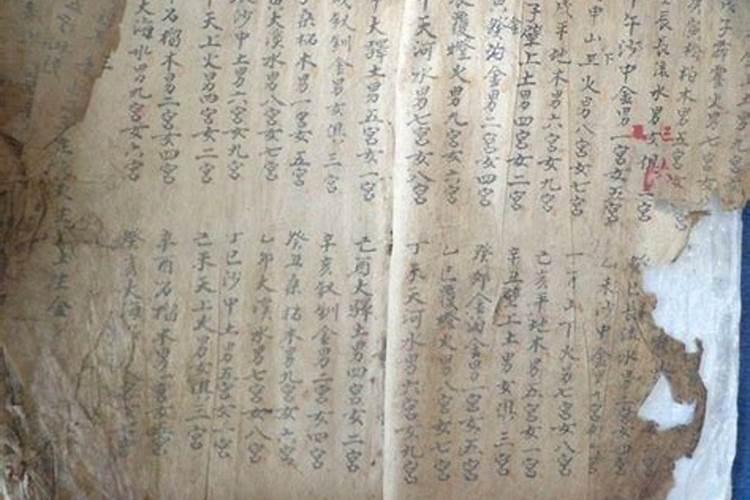 子霹靂火男七宮女
寅松柏木男五宮女
辰長流水男女俱二宮
長流水男
午沙中金男一宮女五宮
乙未沙中金男
申山下火男八宮女七宮
山下火男七宮女八宮
戌平地木男六宮女九宮
己亥平地木男五宮女一宮
子壁上土男四宮女二宮
辛丑壁上土男女俱三宮
寅金泊金男二宮女四宮
癸卯金泊金男一宮女五宮
辰覆燈火男九宮女六宮
乙巳覆燈火男八宮女七宮
午天河水男七宮女八宮
丁未天河水男六宮女九宮
大驛土男五宮女一宮
己酉大驛土男四宮女二宮
釵釧金男女俱三宮
辛亥釵釧金男二宮女四宮
桑柘木男一宮女五宮
癸丑桑柘木男九宮女六宮
大溪水男八宮女七宮
乙卯大溪水男七宮女八宮
沙中土男六宮女九宮
丁巳沙中土男五宮女一宮
天上火男四宮女二宮
己未天上火男女俱三宮
石榴木男二宮女四宮
辛酉石榴木男一宮女五宮
大海水男九宮女六宮
癸亥大海
生金